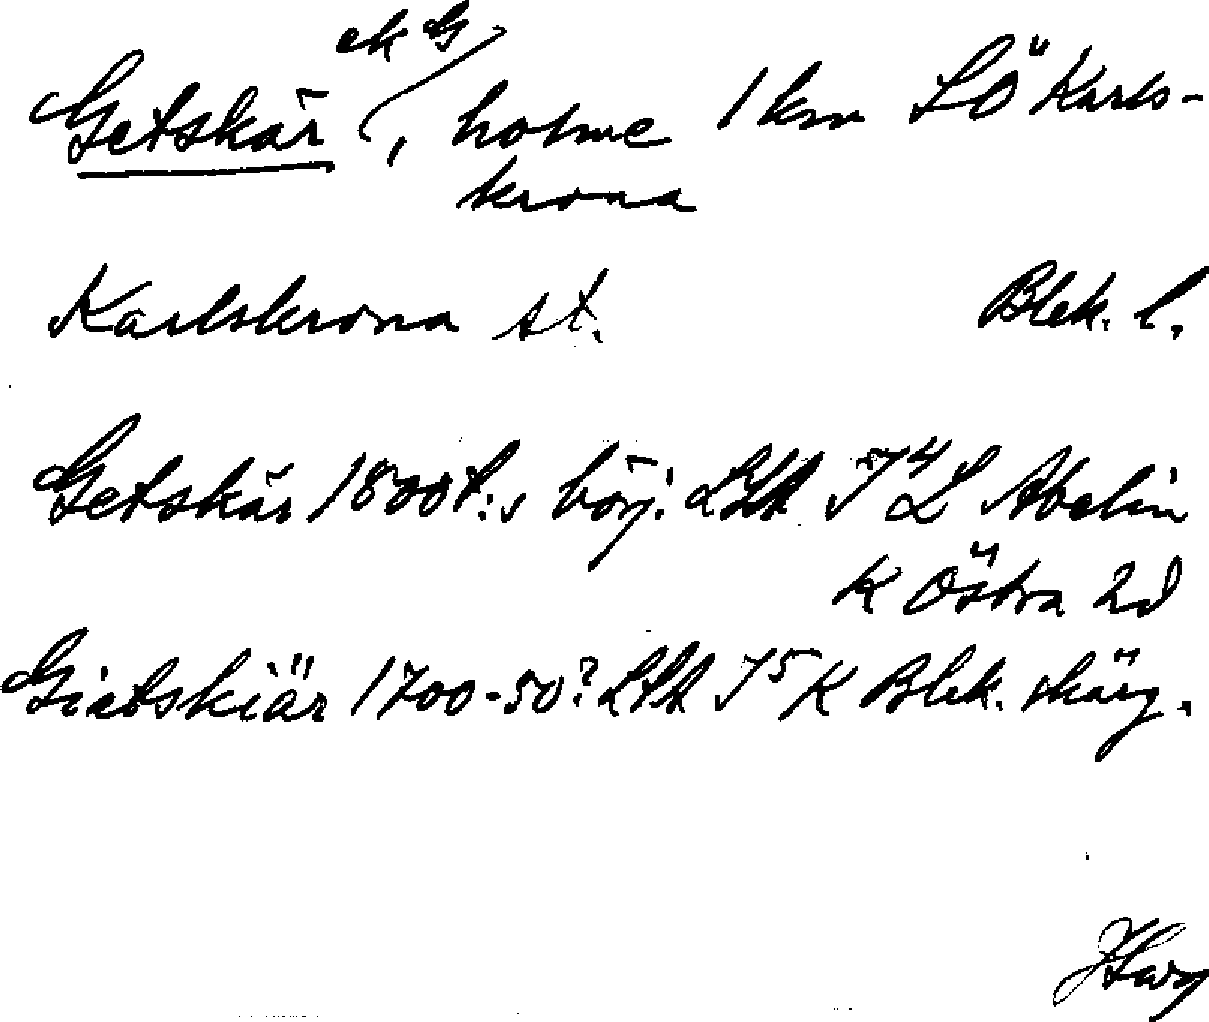 ek G
Getskär, holme 1 km SÖ Karls-
krona
Karlskrona st. Blek. l.
Getskär 1800t:s börj. J4 L Abelin
K Östra 2d
Gietskiär 1700-50? J5 K Blek. skärg.